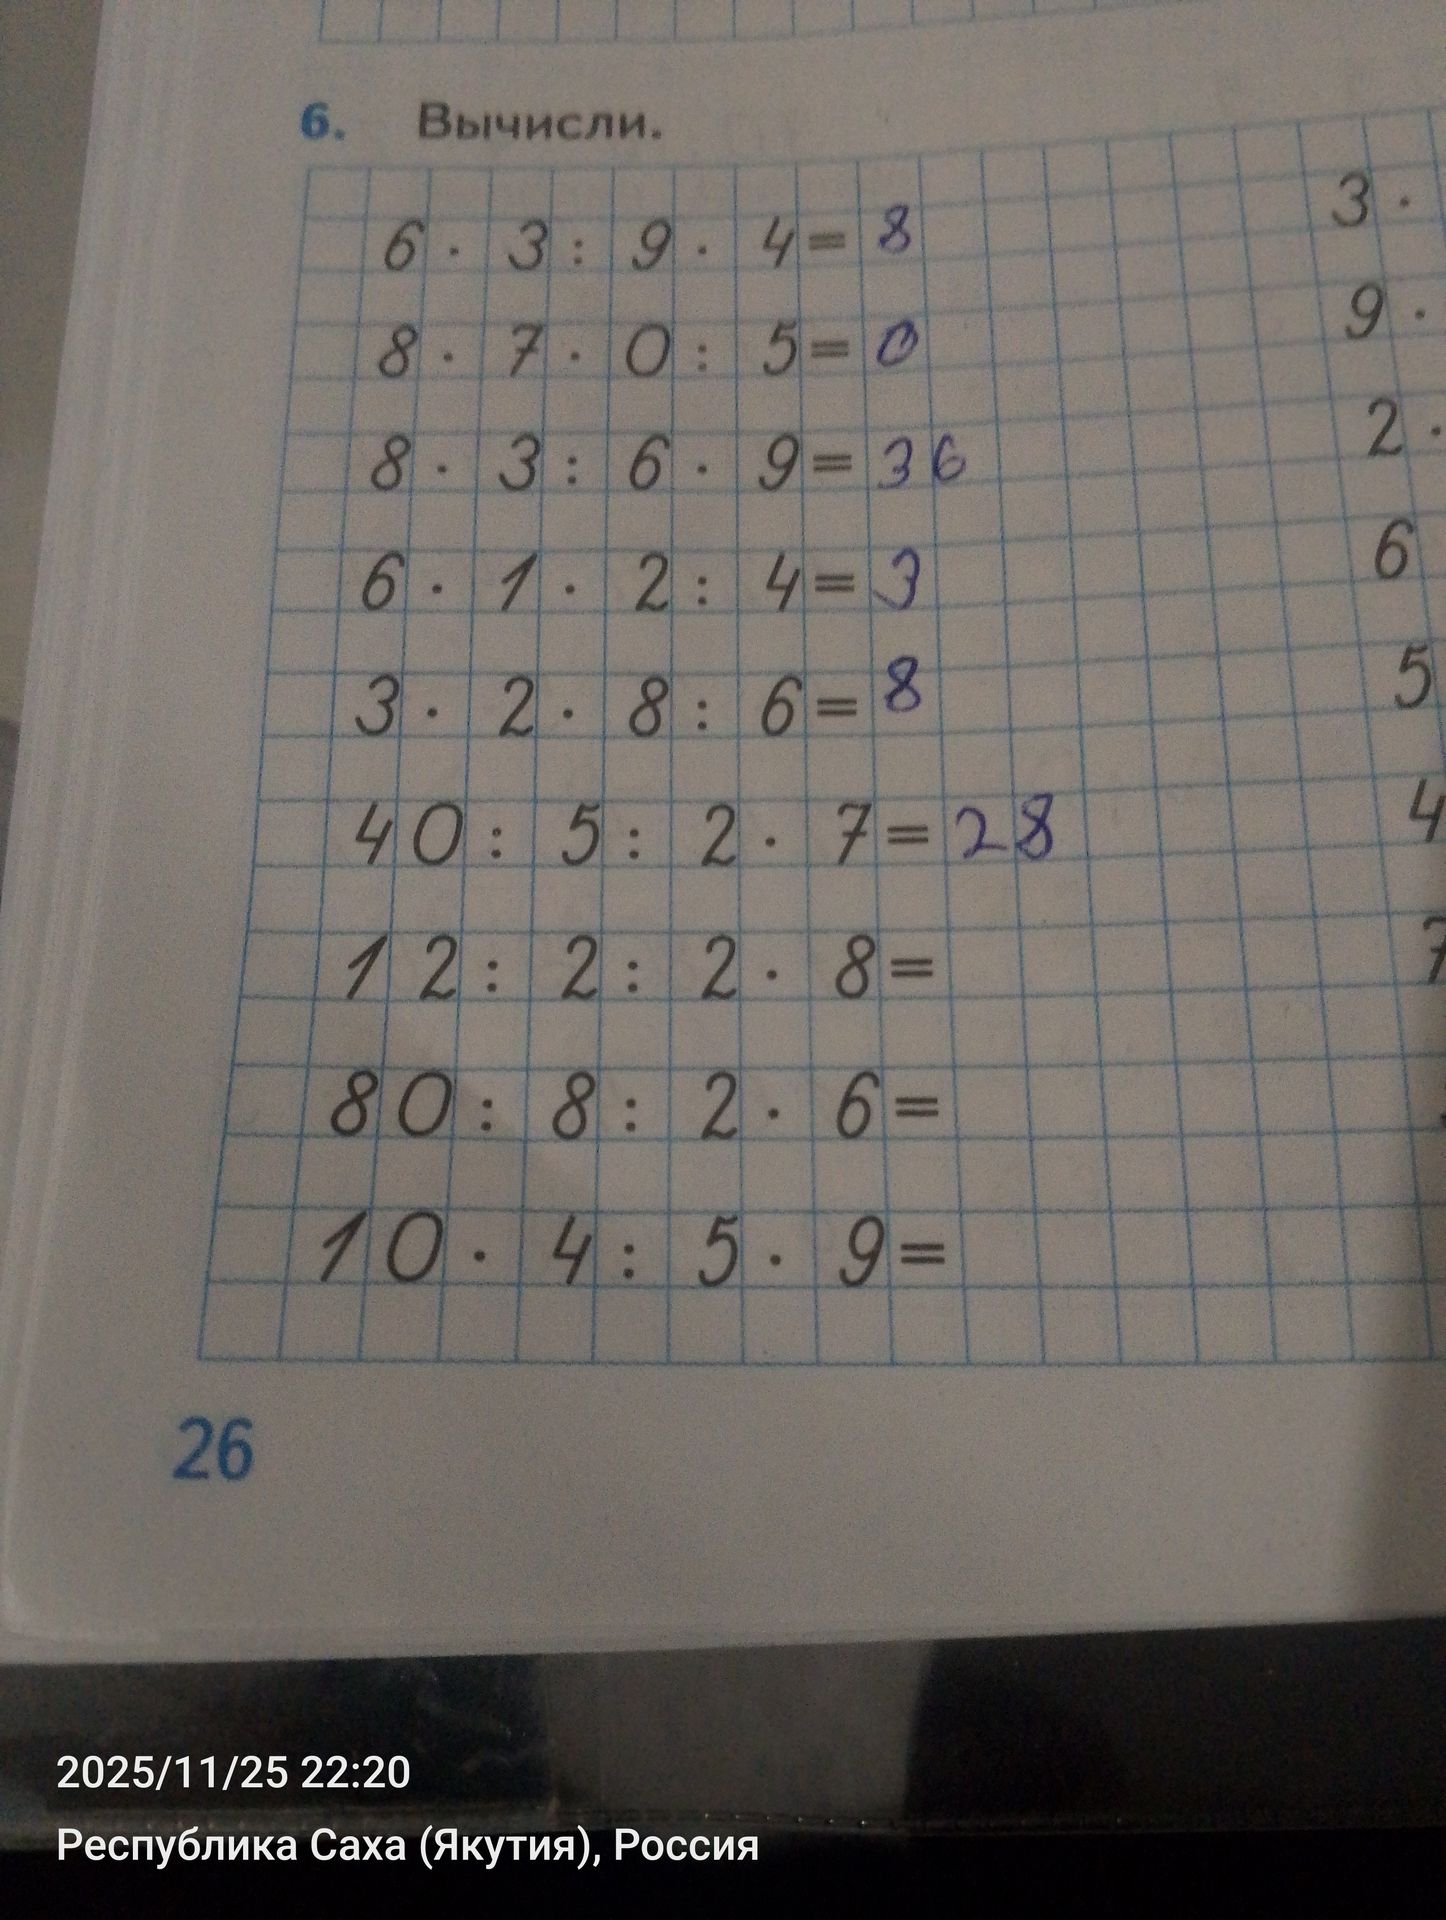 6. Вычисли.
6 · 3 : 9 · 4 = 8
3 ·
8 · 7 · 0 : 5 = 0
9 ·
8 · 3 : 6 · 9 = 36
2 ·
6 · 1 · 2 : 4 = 3
6
3 · 2 · 8 : 6 = 8
5
40 : 5 : 2 · 7 = 28
4
12 : 2 : 2 · 8 =
7
80 : 8 : 2 · 6 =
10 · 4 : 5 · 9 =
26
2025/11/25 22:20
Республика Саха (Якутия), Россия